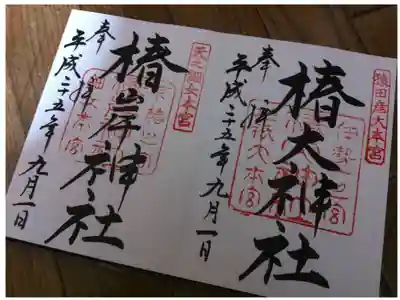 猿田彦大本宮
奉拝
椿大神社
伊勢一之宮
平成二十五年九月一日
天之鈿女本宮
奉拝
椿岸神社
平成二十五年九月一日